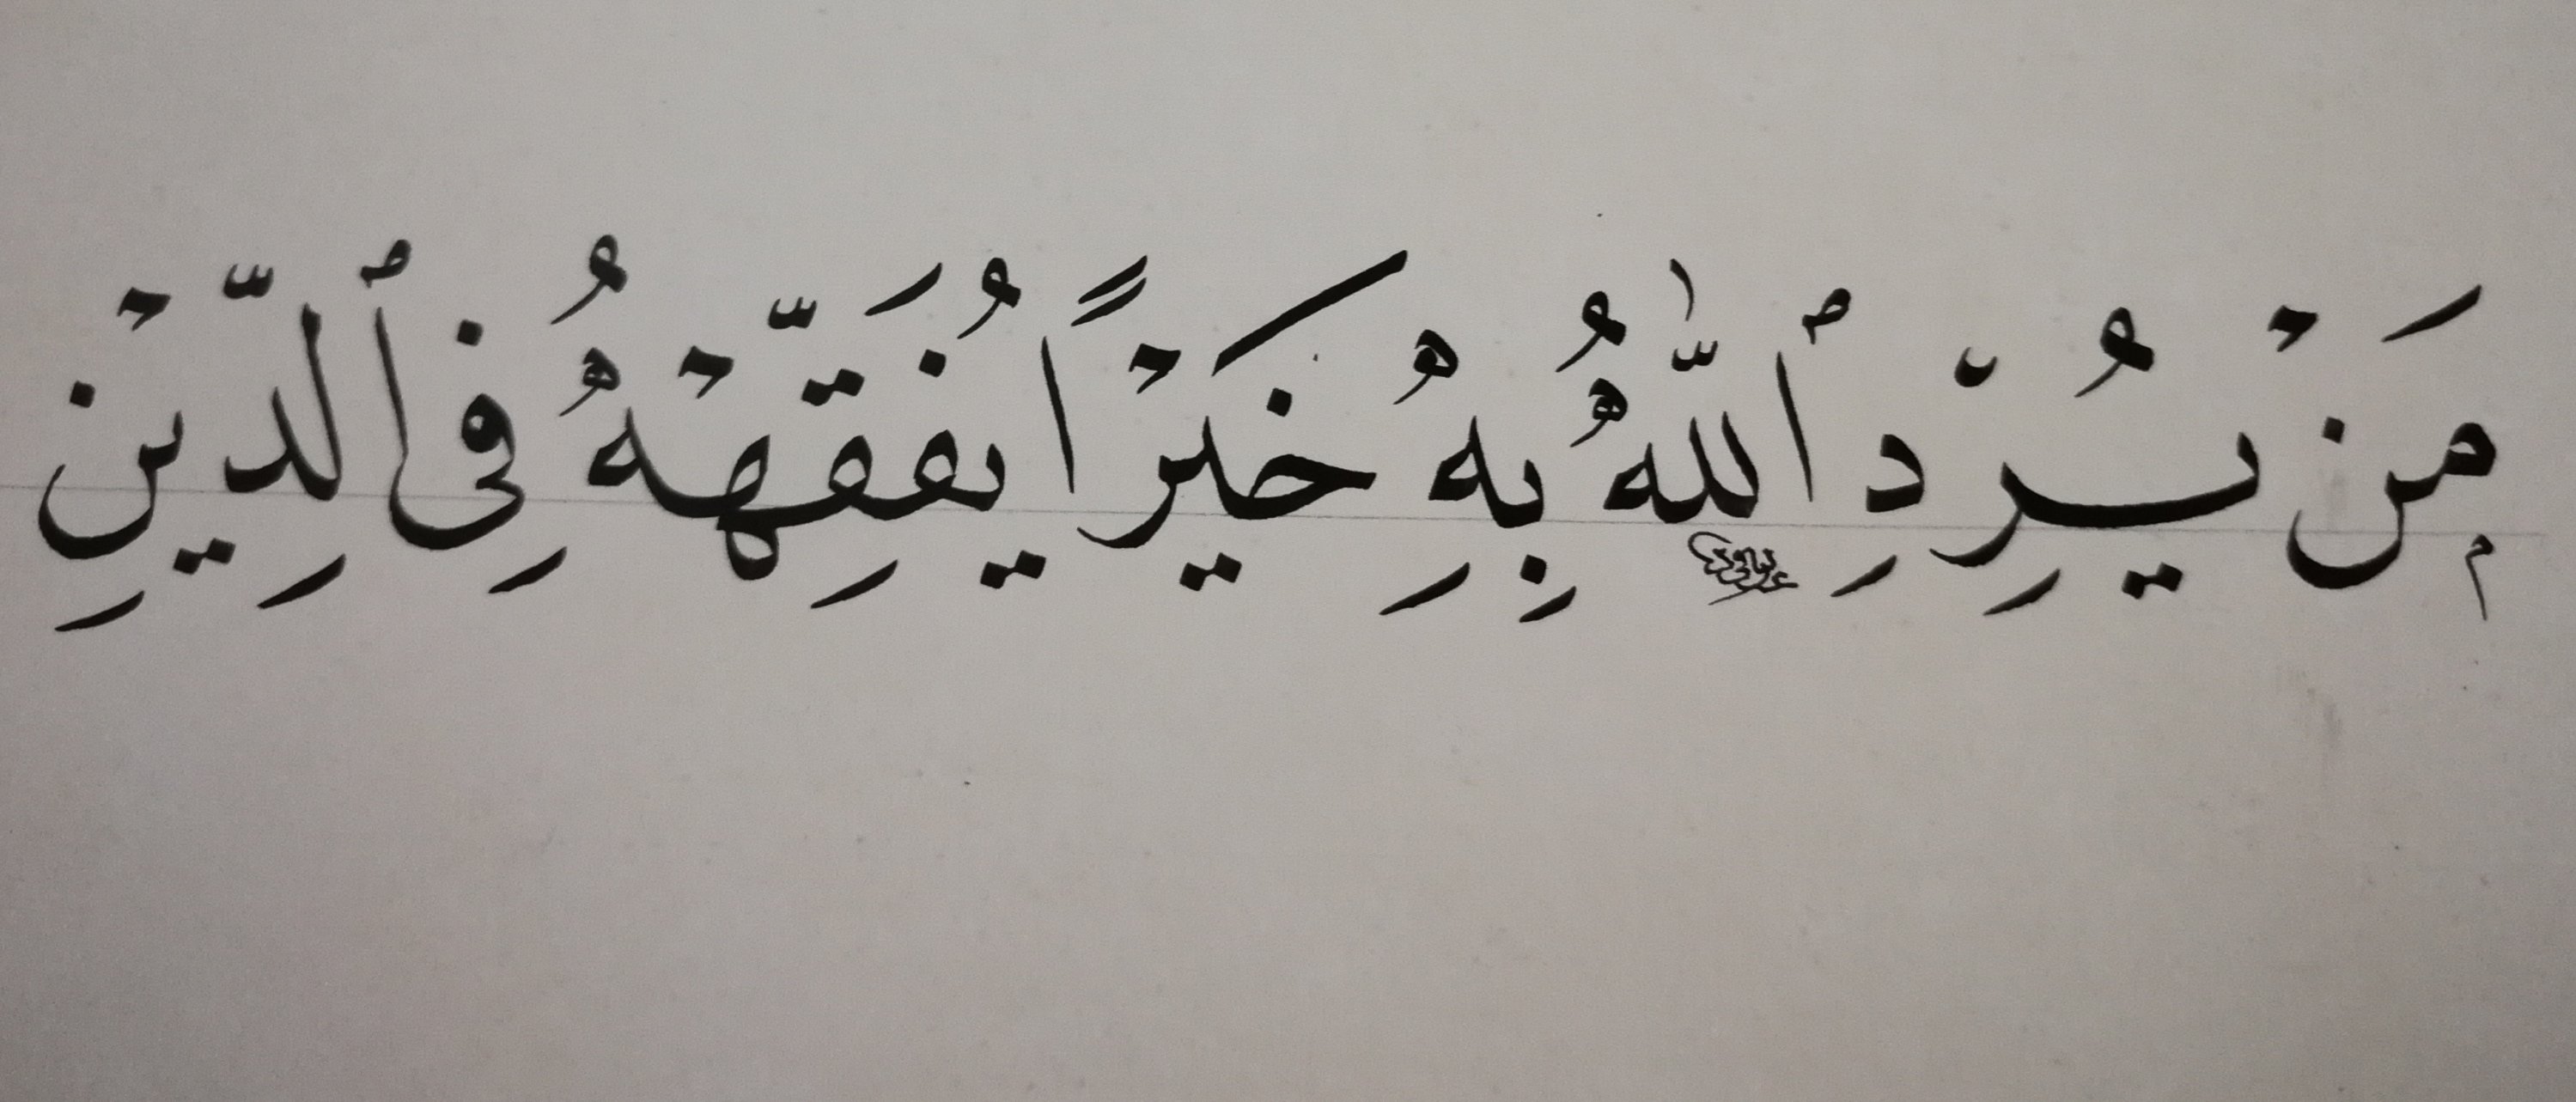 مَنْ يُرِدِ ٱللّٰهُ بِهِ خَيْرًا يُفَقِّهْهُ فِى ٱلدِّيْنِ